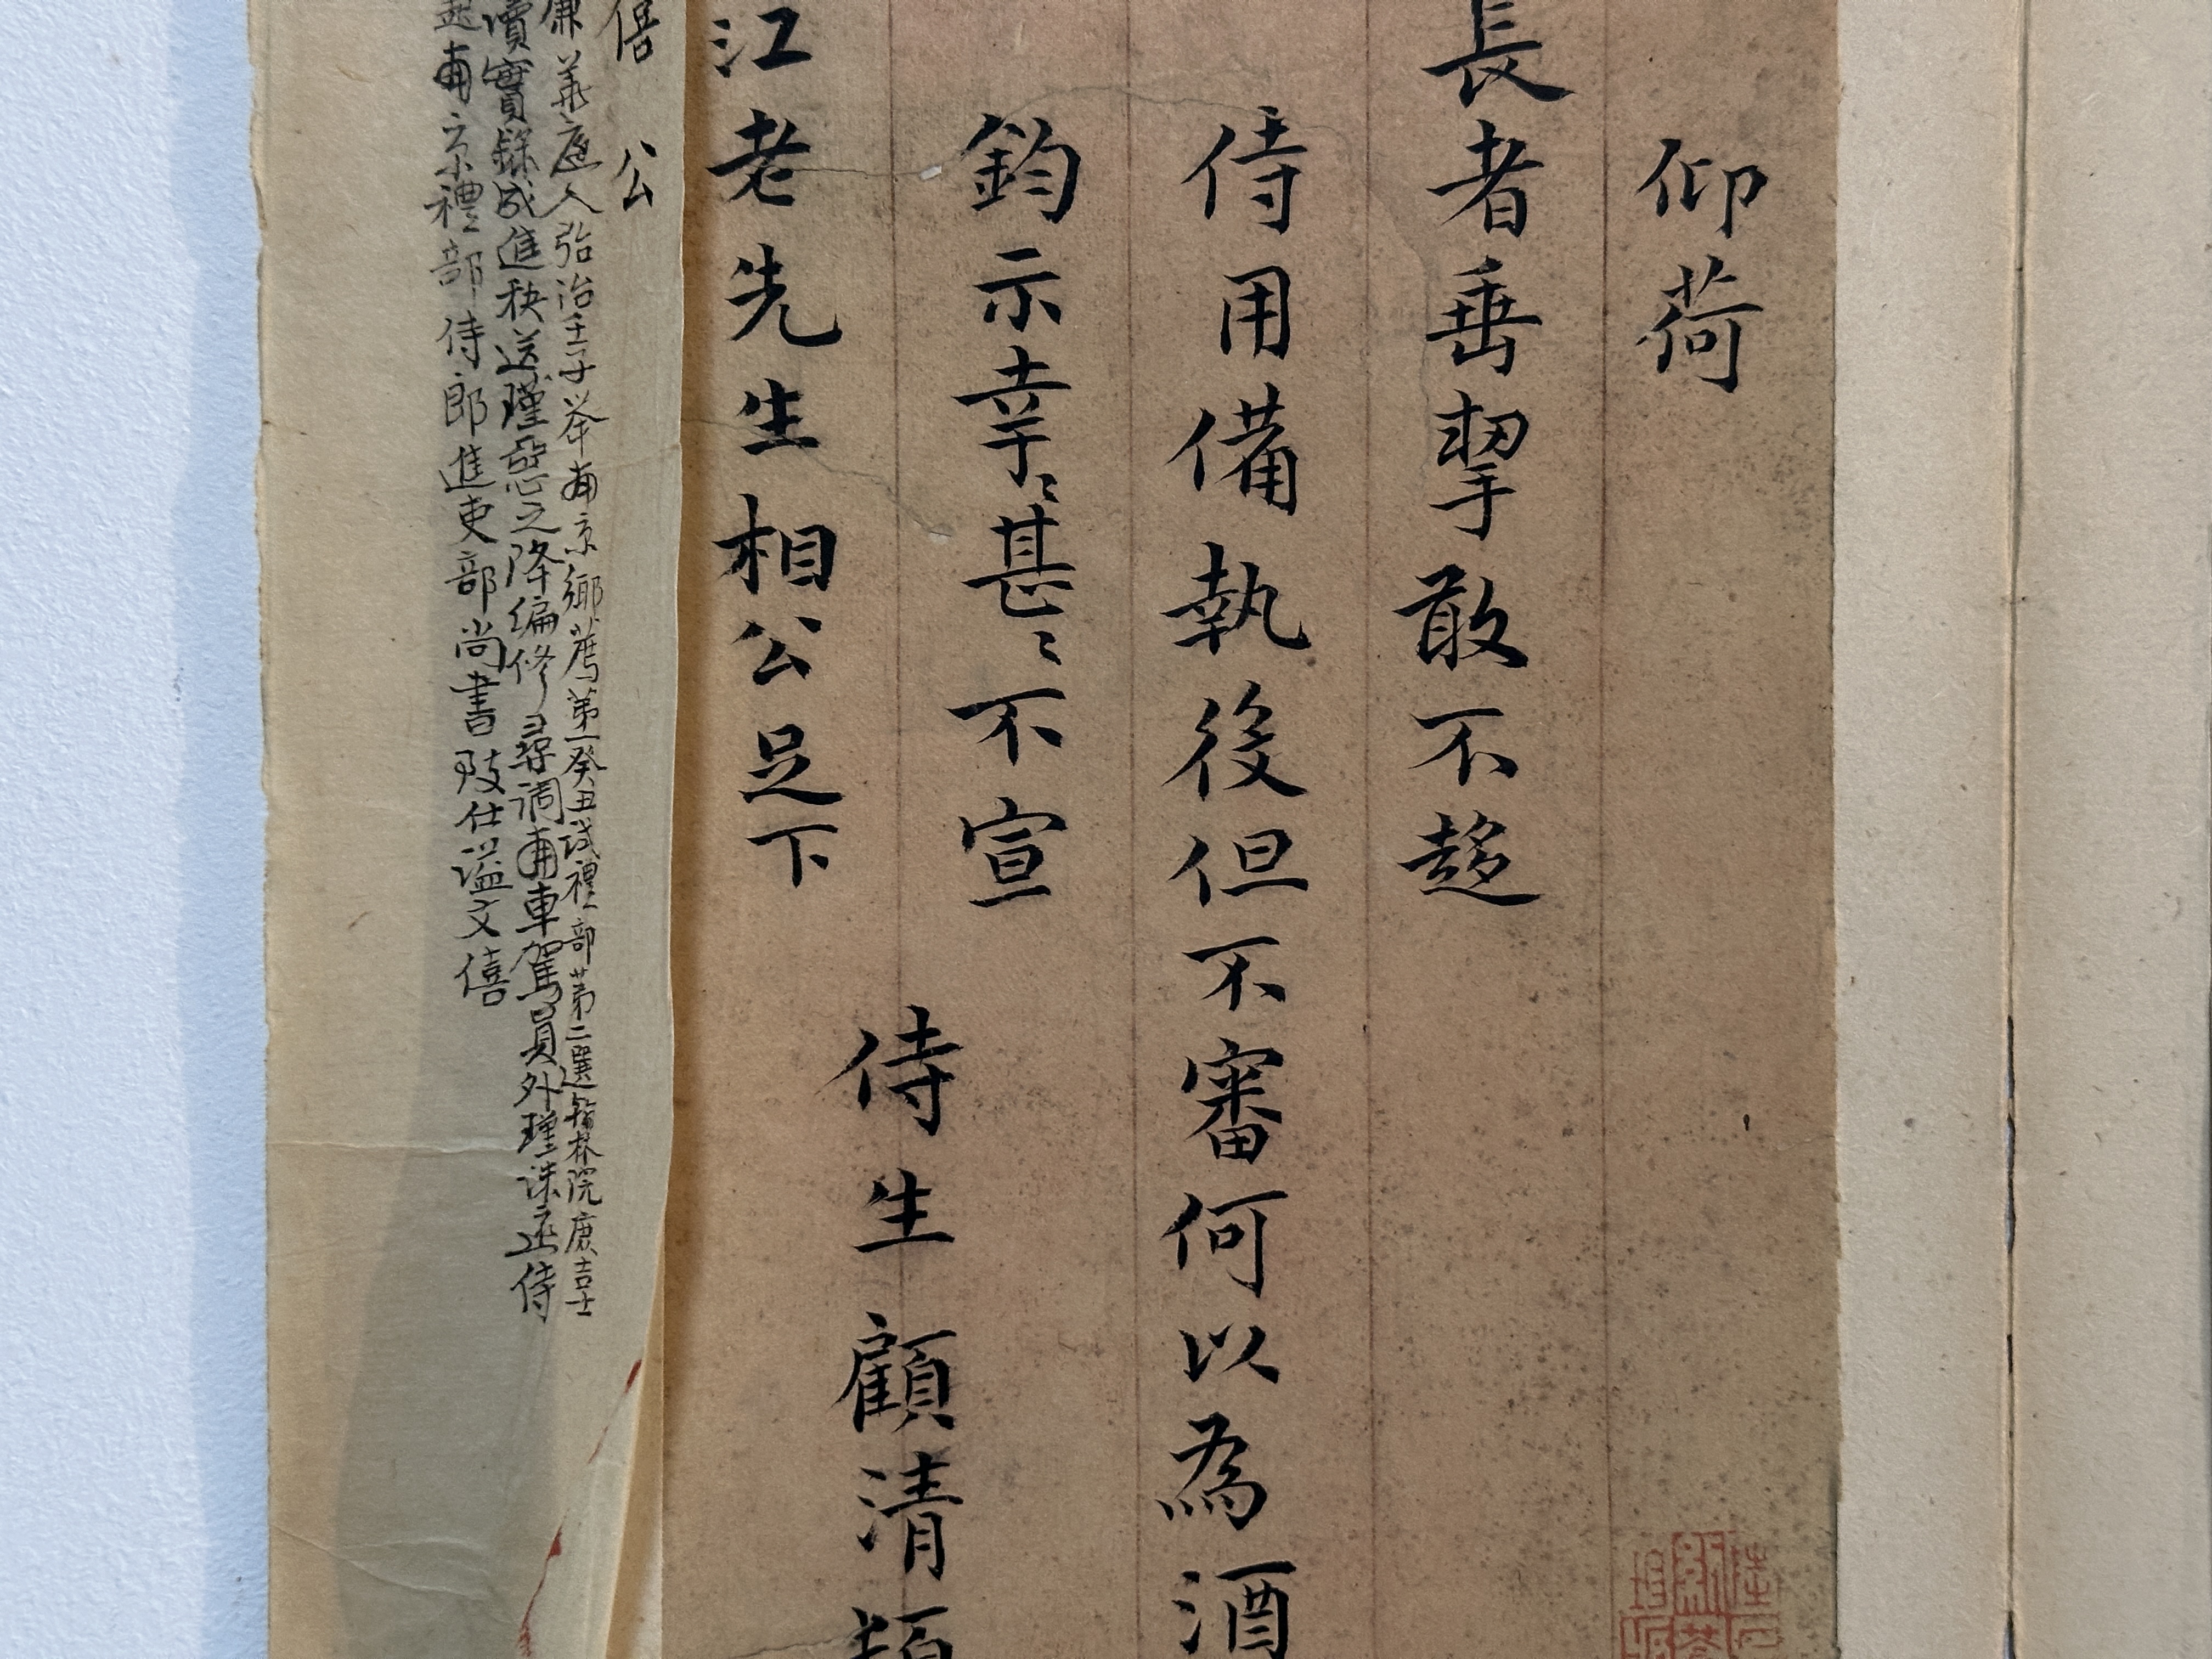 仰荷
長者垂挈敢不趍
侍用備執後但不審何以為酒
鈞示幸〻甚〻不宣
侍生顧清頓
江老先生相公足下
僖公
廉善庭人弘治壬子举南京鄉薦第一癸丑試禮部第二選翰林院庶吉士
讀實錄成進秩送瑾惡之降编修尋調南車駕員外瑾誅还侍
起南京禮部侍郎進吏部尚書致仕謚文僖